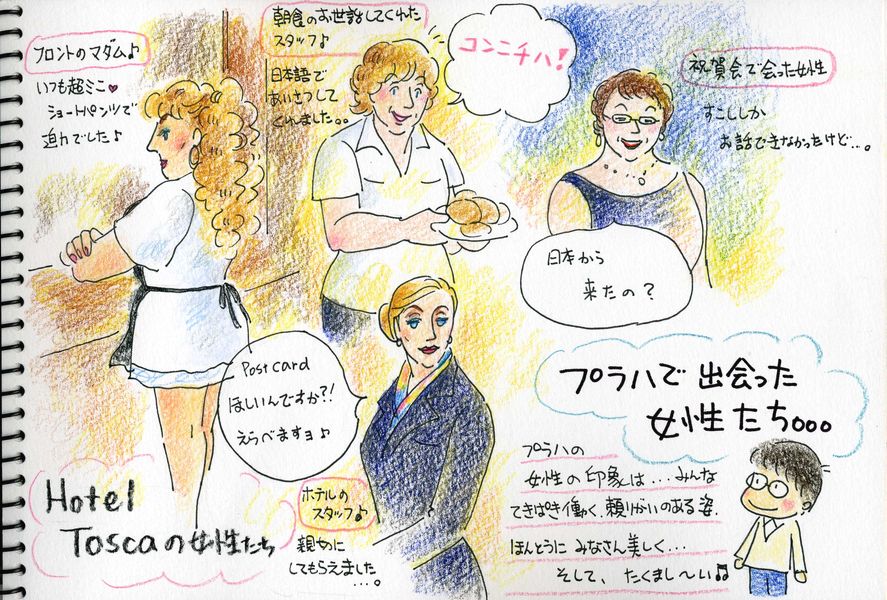 フロントのマダム♪
いつも超ミニ♥
ショートパンツで
迫力でした♪
朝食のお世話してくれた
スタッフ♪
日本語で
あいさつして
くれました。。
コンニチハ!
祝賀会で会った女性
すこししか
お話できなかったけど…。
日本から
来たの?
Postcard
ほしいんですか?!
えらべますヨ♪
プラハで出会った
女性たち。。。
Hotel
Toscaの女性たち
ホテルの
スタッフ♪
親切に
してもらえました
…。
プラハの
女性の印象は…みんな
てきぱき働く、頼りがいのある姿.
ほんとうにみなさん美しく…
そして、たくまし〜い♫